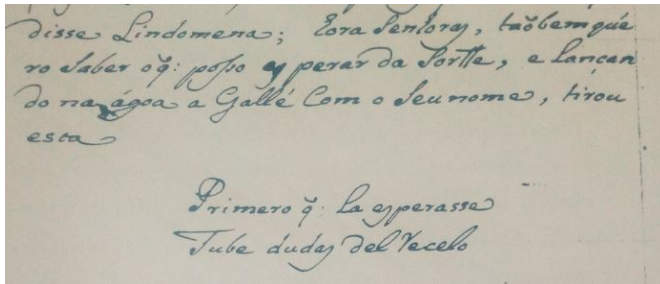 disse Lindomena; Eora Senhoras, taõbem qué
ro saber oq̃: posso esperar da Sortte, e lancan
do na ágoa a Gallé Com o Seu nome, tirou
esta
Primero q̃: la esperasse
Tube dudas del recelo